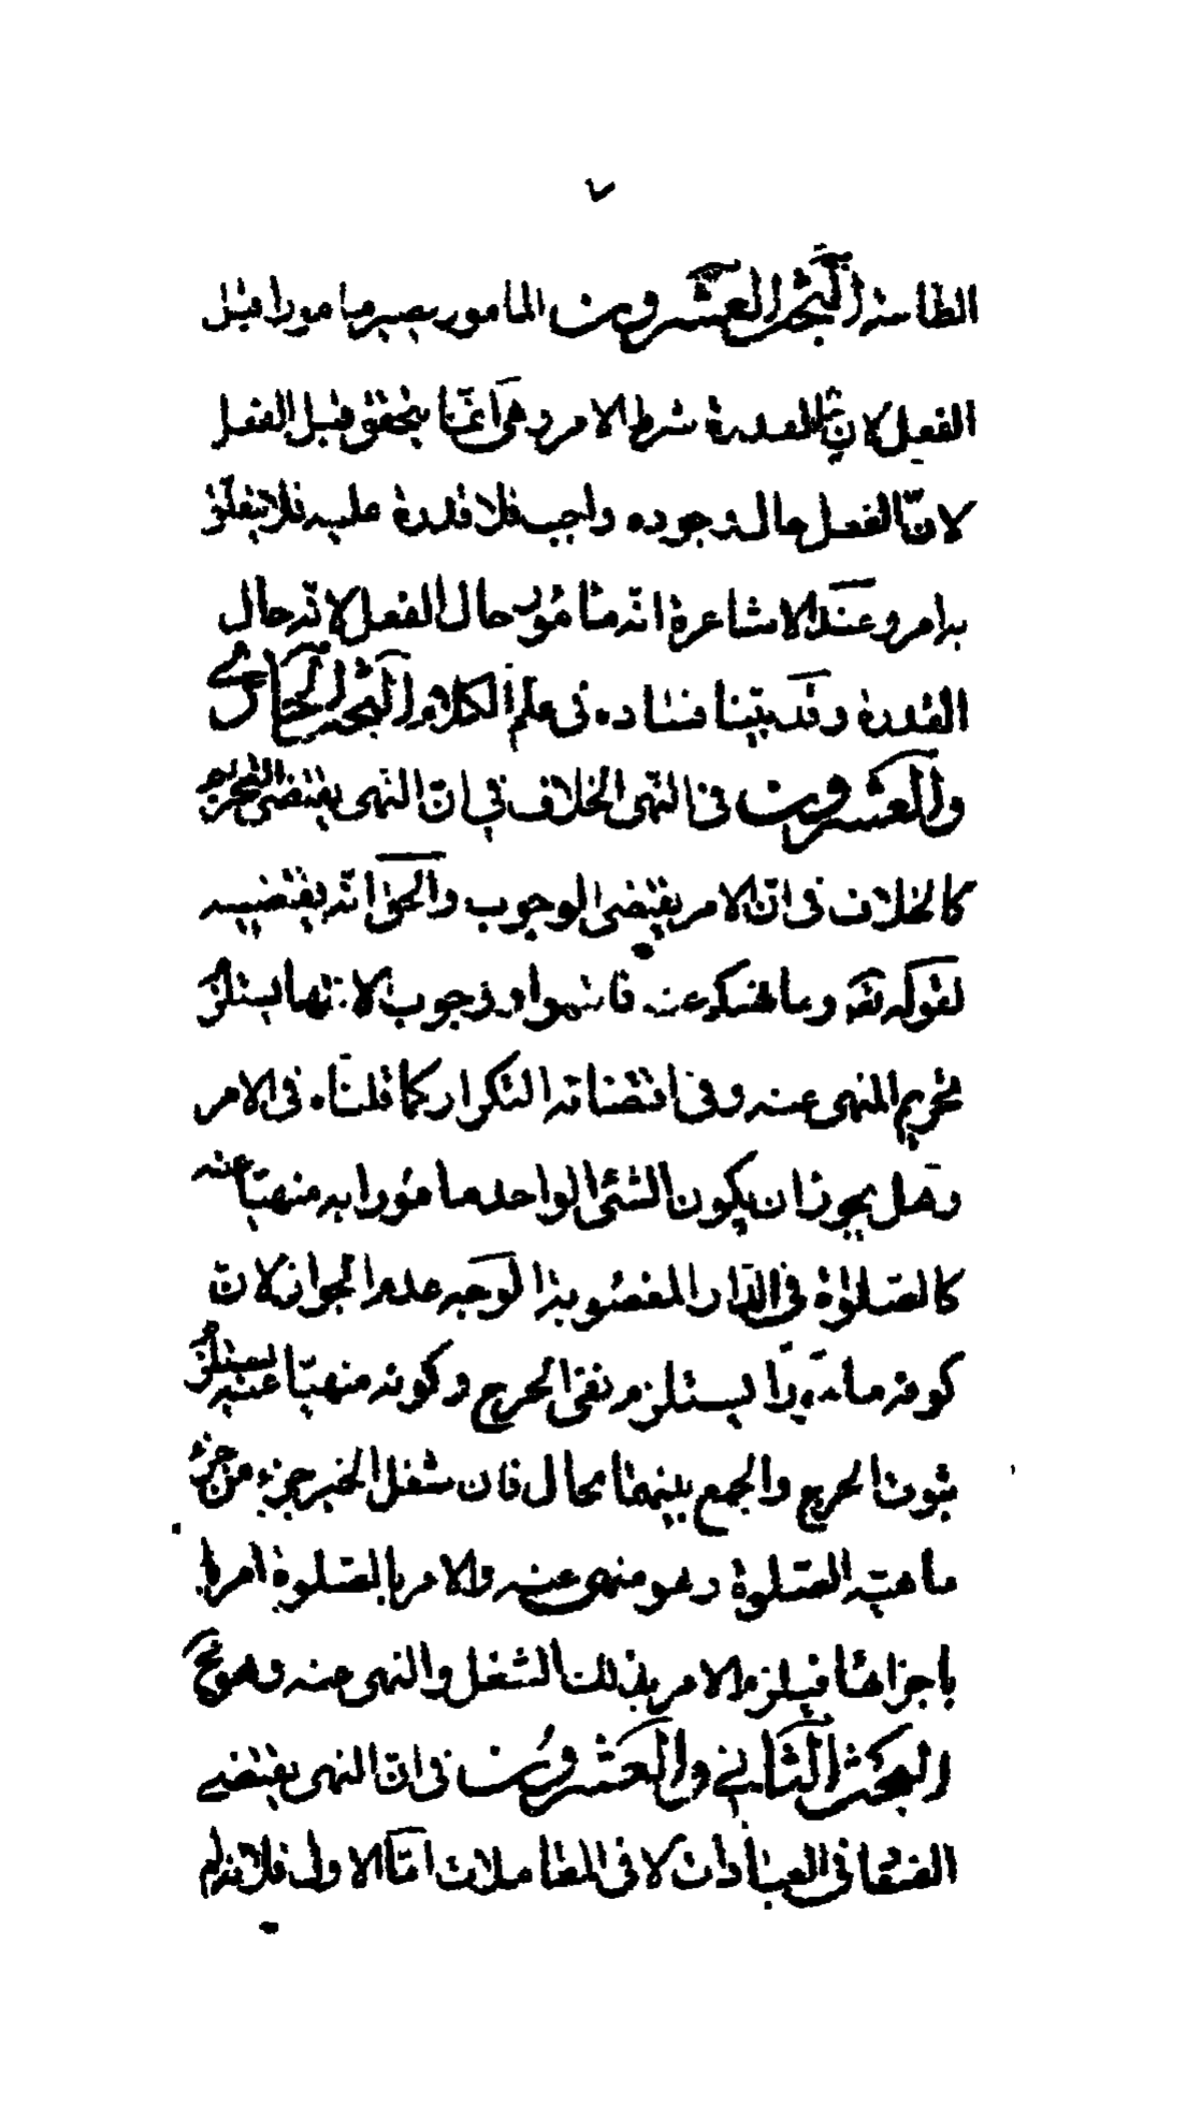 ٧
الطاعة البحث العشرون المامور يصير مامورا قبل
الفعل لان القدرة شرط الامر وهى انما يتحقق قبل الفعل
لان الفعل حال وجوده واجب فلا قدرة عليه فلا يتعلق
به امر وعند الاشاعرة انه مامور حال الفعل لانه حال
القدرة وقد بينا فساده فى علم الكلام البحث الحادى
والعشرون فى النهى الخلاف فى ان النهى يقتضى التحريم
كالخلاف فى ان الامر يقتضى الوجوب والحق انه يقتضيه
لقوله تعه وما نهيكم عنه فانتهوا ووجوب الانتهاء يستلزم
تحريم المنهى عنه وفى اقتضائه التكرار كما قلناه فى الامر
وهل يجوز ان يكون الشئ الواحد مامورا به منهيا عنه
كالصلوة فى الدار المغصوبة الوجه عدم الجواز لان
كونه مامورا يستلزم نفى الحرج وكونه منهيا عنه يستلزم
ثبوت الحرج والجمع بينهما محال فان شغل الحيز جزء من جزء
ماهية الصلوة وهو منهى عنه والامر بالصلوة امر
باجزائها فيلزم الامر بذلك الشغل والنهى عنه وهو مح
البحث الثانى والعشرون فى ان النهى يقتضى
الفساد فى العبادات لا فى المعاملات اما الاول فلانه لم